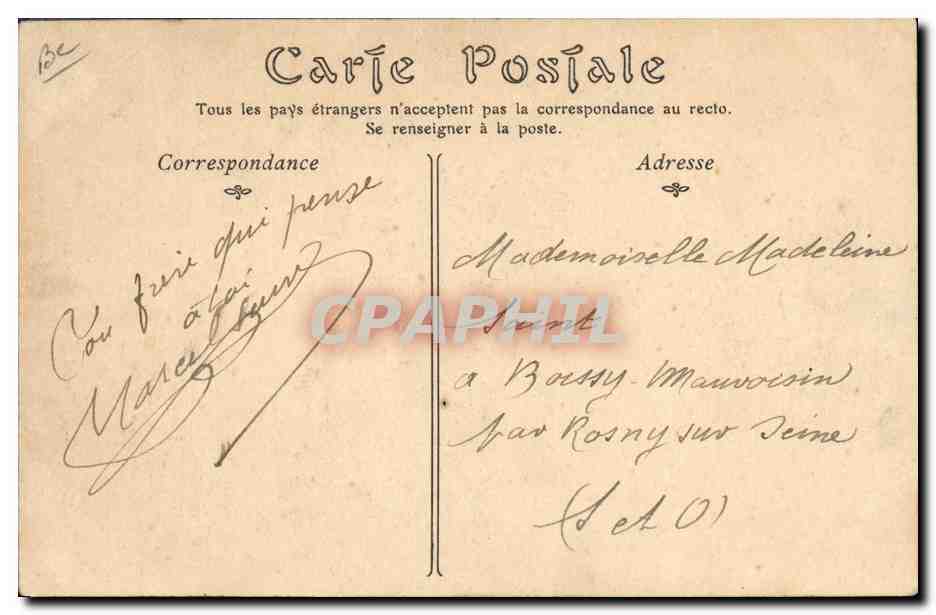 Be
Carte Postale
Tous les pays étrangers n'acceptent pas la correspondance au recto.
Se renseigner à la poste.
Correspondance
Ton frère qui pense
à toi
Marcel Saint
Adresse
Mademoiselle Madeleine
Saint
a Boissy-Mauvoisin
par Rosny sur Seine
(S et O)
CPAPHIL